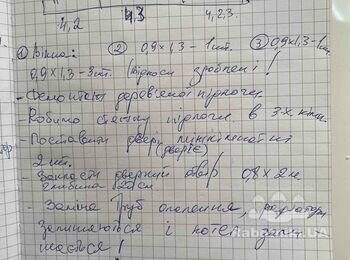 4,2 4,3 4,2,3.
① Вікна: ② 0,9×1,3 – 1 шт. ③ 0,9×1,3 – 1 шт.
0,9×1,3 – 3 шт. (відкоси зроблені!
- Демонтаж дерев'яної підлоги
- Робимо стяжку підлоги в 3х кімн.
- Поставити двері міжкімнатні
(двоє)
2 шт.
- дверний отвір 0,8×2 м.
глибина 20 см
- Заміна труб опалення, радіатори
Залишаються і котел зали
шається!